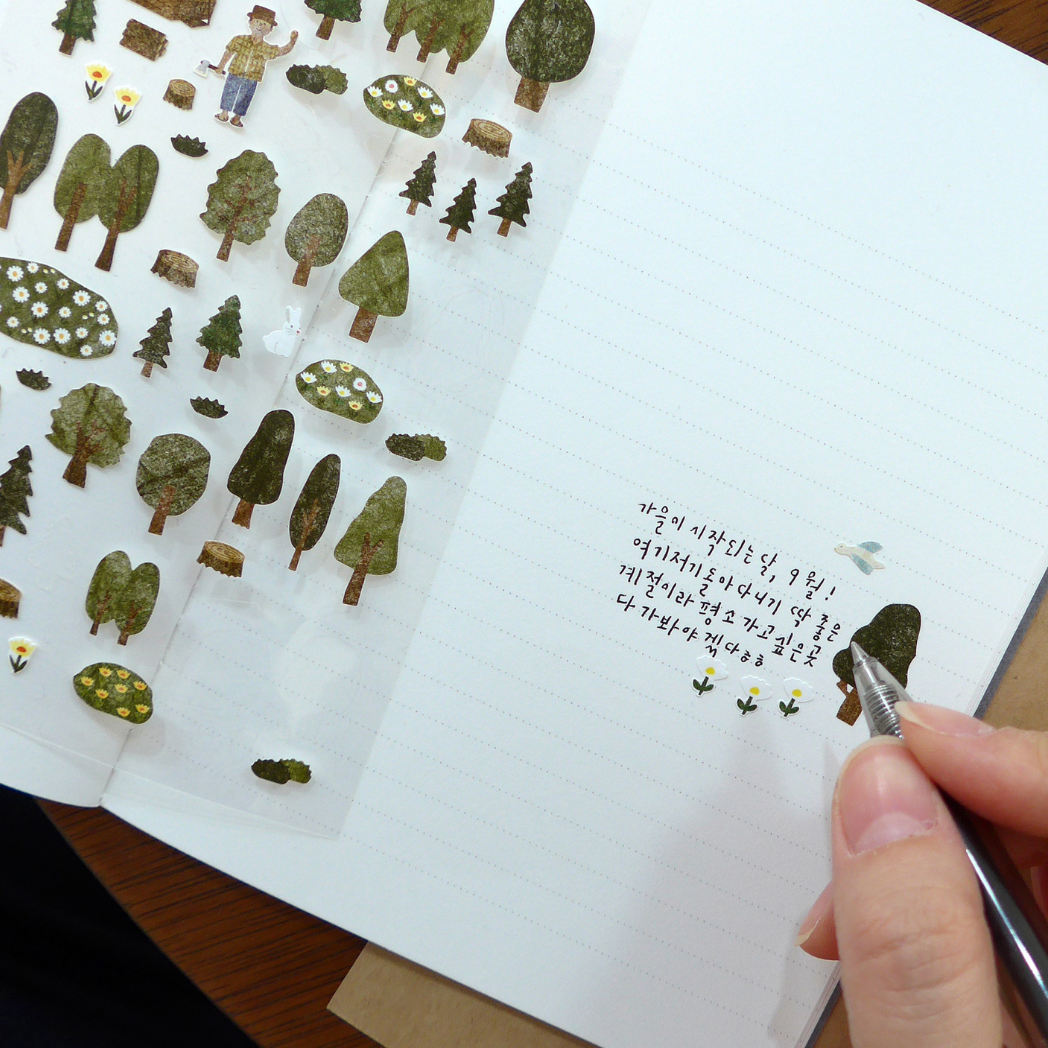 가을이 시작되는 달, 9월!
여기저기 돌아다니기 딱 좋은
계절이라 평소 가고싶은곳
다 가봐야겠다ㅎㅎ